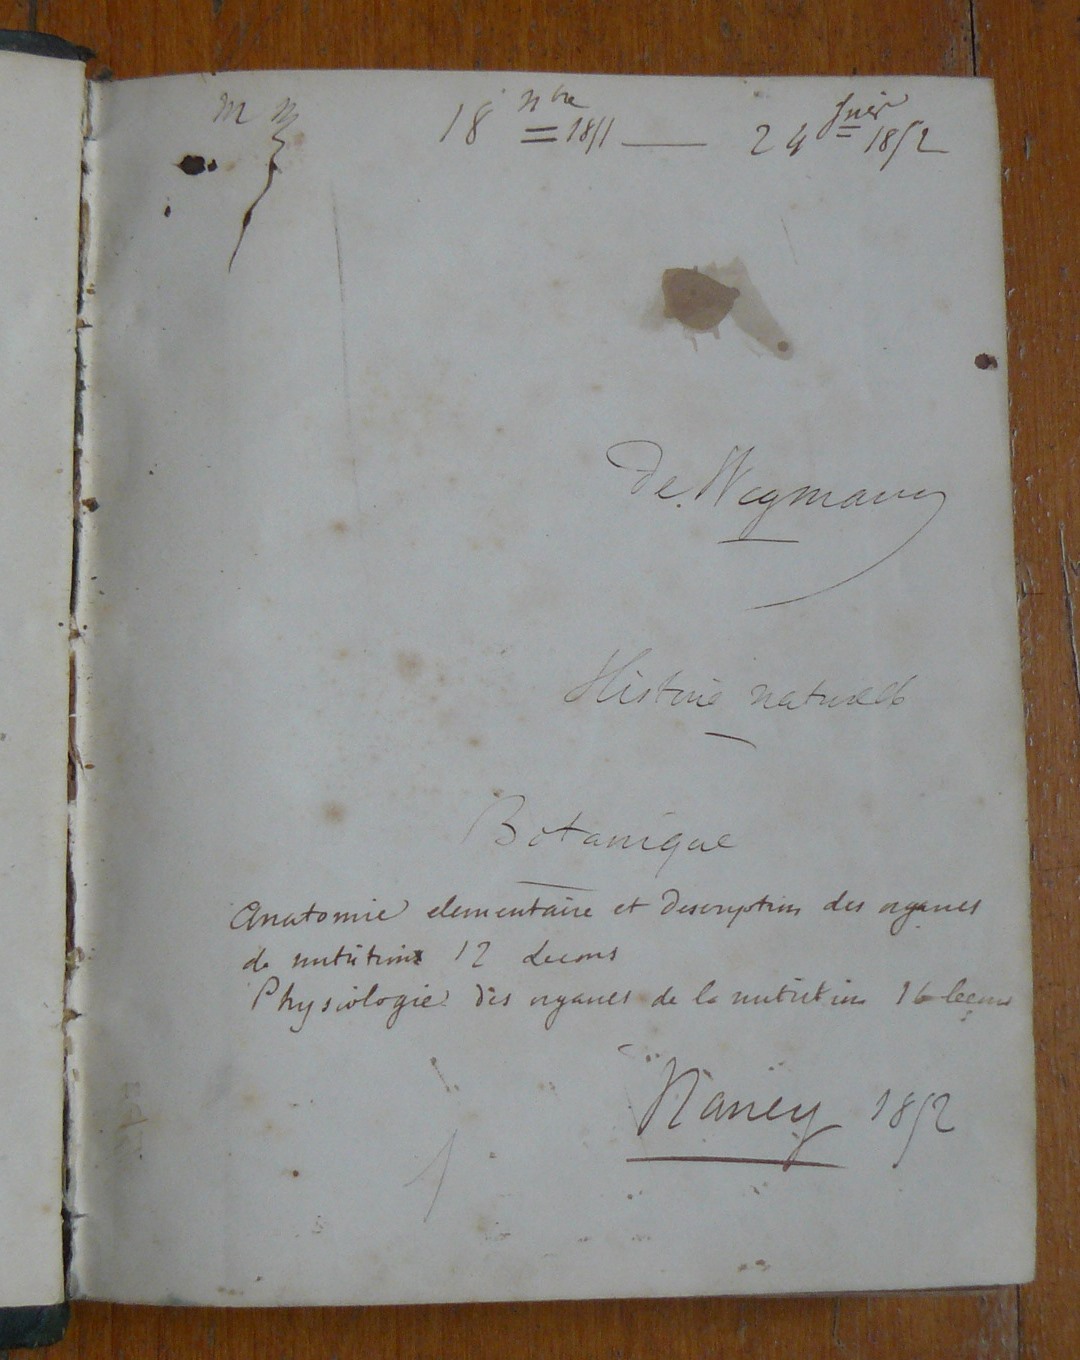 m n
18 nbre 1851 — 24 1852
De Wegmann
Histoire naturelle
Botanique
Anatomie elementaire et Description des organes
de nutrition 12 Lecons
Physiologie des organes de la nutrition 16 leçons
Nancy 1852